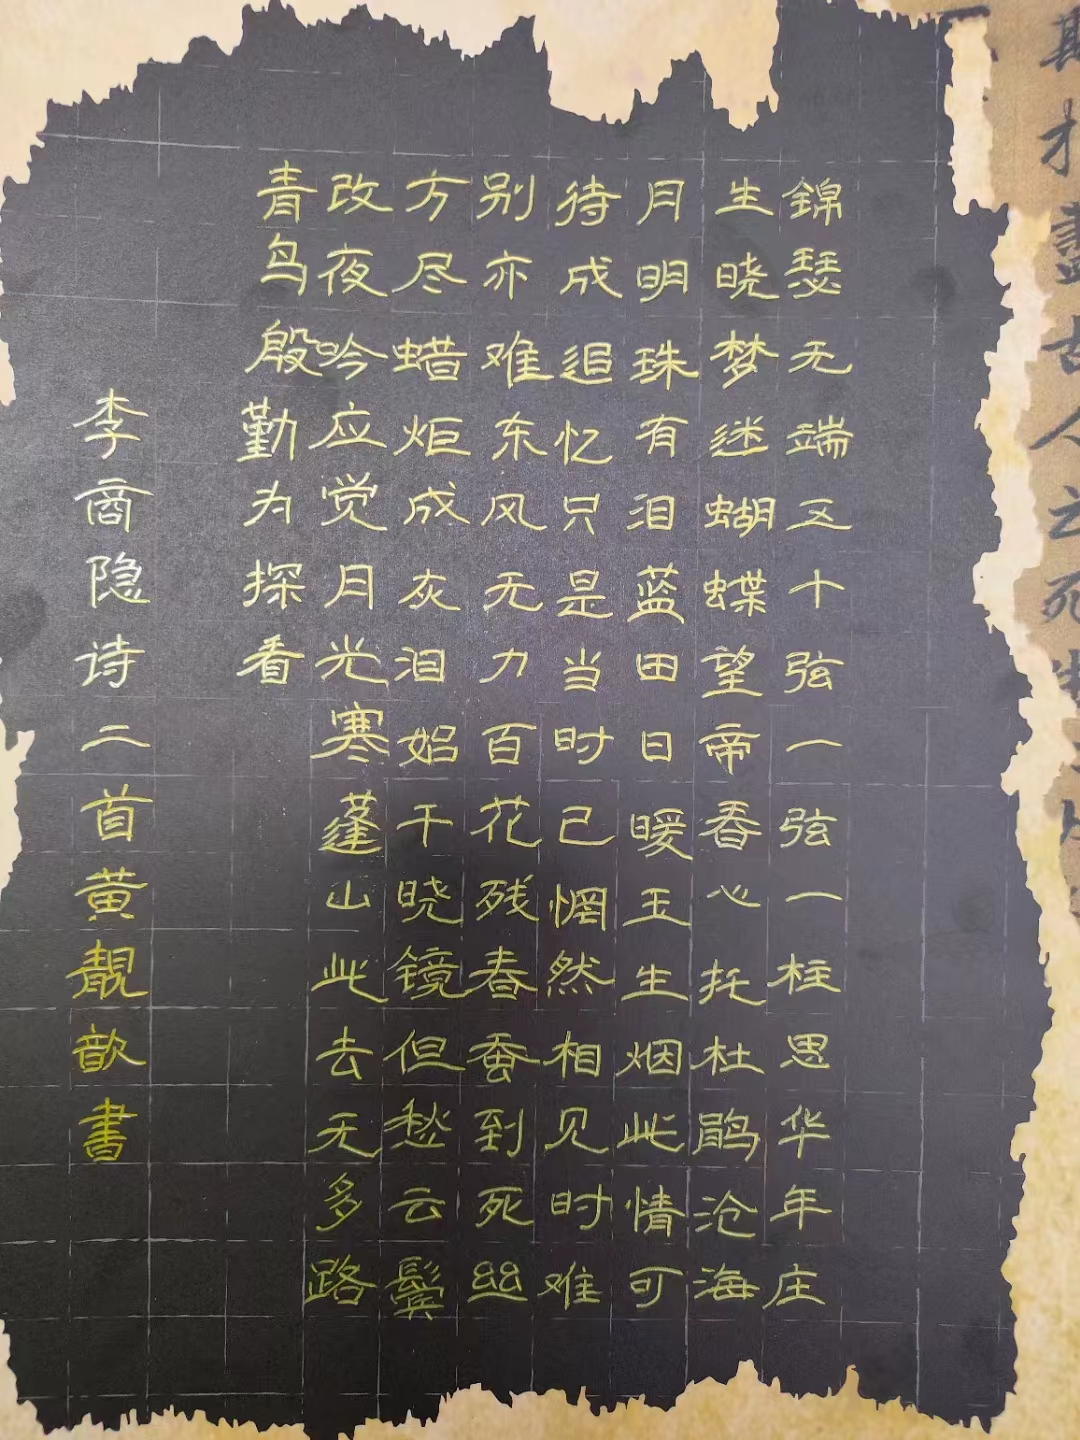 錦瑟无端五十弦一弦一柱思华年庄
生晓梦迷蝴蝶望帝春心托杜鹃沧海
月明珠有泪蓝田日暖玉生烟此情可
待成追忆只是当时已惘然相见时难
别亦难东风无力百花残春蚕到死丝
方尽蜡炬成灰泪始干晓镜但愁云鬓
改夜吟应觉月光寒蓬山此去无多路
青鸟殷勤为探看
李商隐诗二首黄靓歆書
古人之死